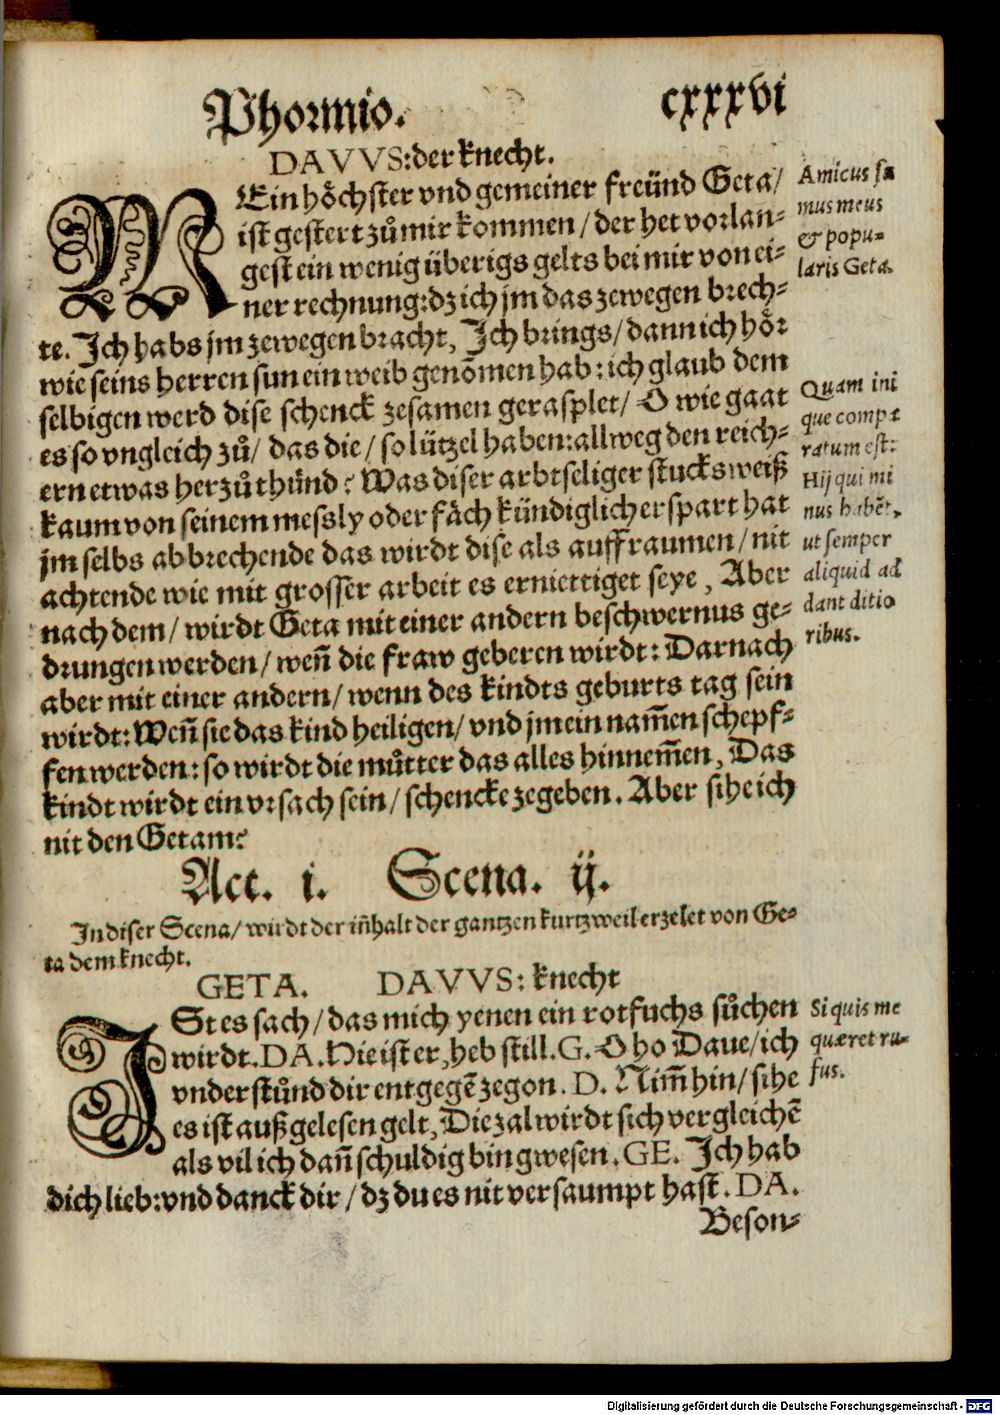 Phormio. cxxxvi
DAVVS: der knecht.
MEin höchster vnd gemeiner freünd Geta/
ist gestert zů mir kommen/ der het vorlan⸗
gest ein wenig überigs gelts bei mir von ei⸗
ner rechnung: dz ich jm das zewegen brech⸗
te. Ich habs jm zewegen bracht, Ich brings/ dann ich hör
wie seins herren sun ein weib genōmen hab: ich glaub dem
selbigen werd dise schenck zesamen gerasplet/ O wie gaat
es so vngleich zů/ das die/ so lützel haben: allweg den reich⸗
ern etwas herzů thünd? Was diser arbtseliger stucksweiß
kaum von seinem messly oder fäch kündiglich erspart hat
jm selbs abbrechende das wirdt dise als auffraumen/ nit
achtende wie mit grosser arbeit es erniettiget seye, Aber
nach dem/ wirdt Geta mit einer andern beschwernus ge⸗
drungen werden/ weñ die fraw geberen wirdt: Darnach
aber mit einer andern/ wenn des kindts geburts tag sein
wirdt: Weñ sie das kind heiligen/ vnd jm ein nam̄en schepf⸗
fen werden: so wirdt die můtter das alles hinnem̄en, Das
kindt wirdt ein vrsach sein/ schencke zegeben. Aber sihe ich
nit den Getam?
Amicus sū
mus meus
& popu⸗
laris Geta.
Quam ini
que compa
ratum est:
Hij qui mi
nus habēt,
ut semper
aliquid ad
dant ditio
ribus.
Act. i. Scena. ij.
In diser Scena/ wirdt der iñhalt der gantzen kurtzweil erzelet von Ge⸗
ta dem knecht.
GETA. DAVVS: knecht
ISt es sach/ das mich yenen ein rotfuchs sůchen
wirdt. DA. Hie ist er, heb still. G. O ho Daue/ ich
vnderstůnd dir entgegē zegon. D. Nim̄ hin/ sihe
es ist außgelesen gelt, Die zal wirdt sich vergleichē
als vil ich dañ schuldig bin gwesen. GE. Ich hab
dich lieb: vnd danck dir/ dz du es nit versaumpt hast. DA.
Si quis me
quæret ru⸗
fus.
Beson⸗
Digitalisierung gefördert durch die Deutsche Forschungsgemeinschaft - DFG